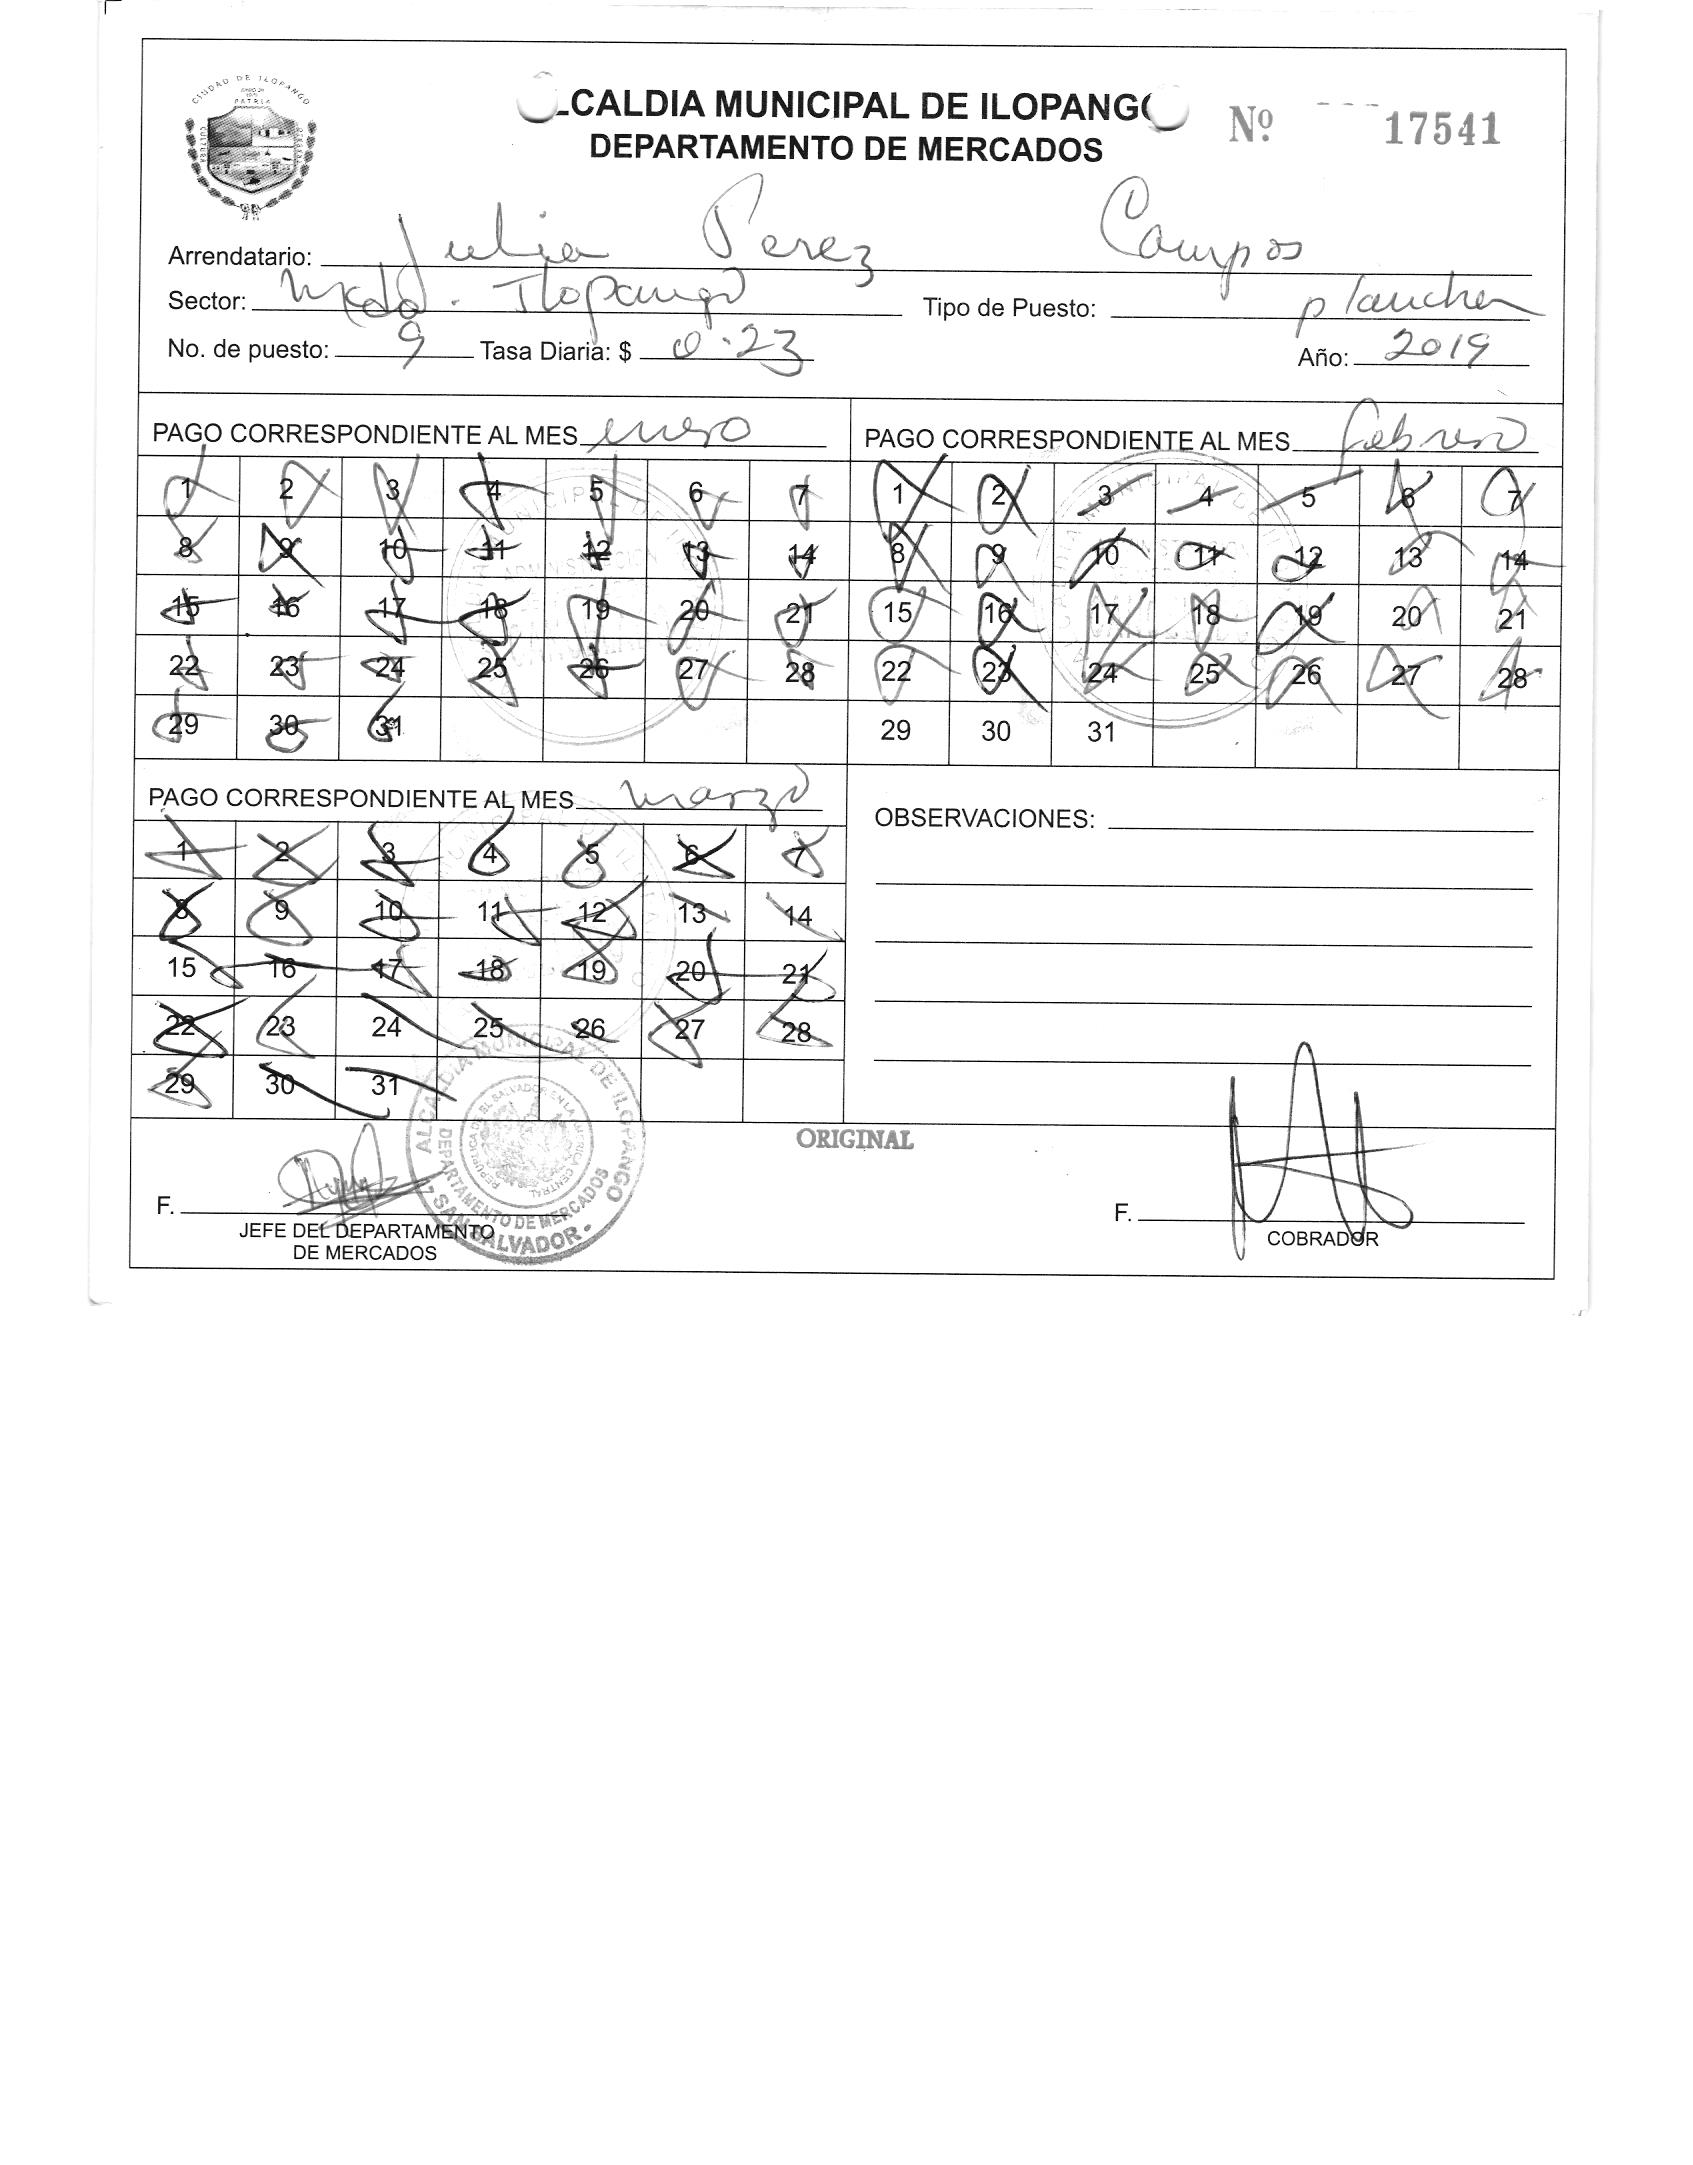 CIUDAD DE ILOPANGO
PATRIA
CULTURA
LCALDIA MUNICIPAL DE ILOPANGO
DEPARTAMENTO DE MERCADOS
Nº 17541
Arrendatario: Julia Perez Campos
Sector: Mcdo. Ilopango Tipo de Puesto: plancha
No. de puesto: 9 Tasa Diaria: $ 0.23 Año: 2019
PAGO CORRESPONDIENTE AL MES enero
1 2 3 4 5 6 7
8 9 10 11 12 13 14
15 16 17 18 19 20 21
22 23 24 25 26 27 28
29 30 31
PAGO CORRESPONDIENTE AL MES febrero
1 2 3 4 5 6 7
8 9 10 11 12 13 14
15 16 17 18 19 20 21
22 23 24 25 26 27 28
29 30 31
PAGO CORRESPONDIENTE AL MES marzo
1 2 3 4 5 6 7
8 9 10 11 12 13 14
15 16 17 18 19 20 21
22 23 24 25 26 27 28
29 30 31
OBSERVACIONES:
ORIGINAL
F.
JEFE DEL DEPARTAMENTO
DE MERCADOS
ALCALDIA MUNICIPAL DE ILOPANGO
DEPARTAMENTO DE MERCADOS
REPUBLICA DE EL SALVADOR EN LA AMERICA CENTRAL
SAN SALVADOR.
F.
COBRADOR